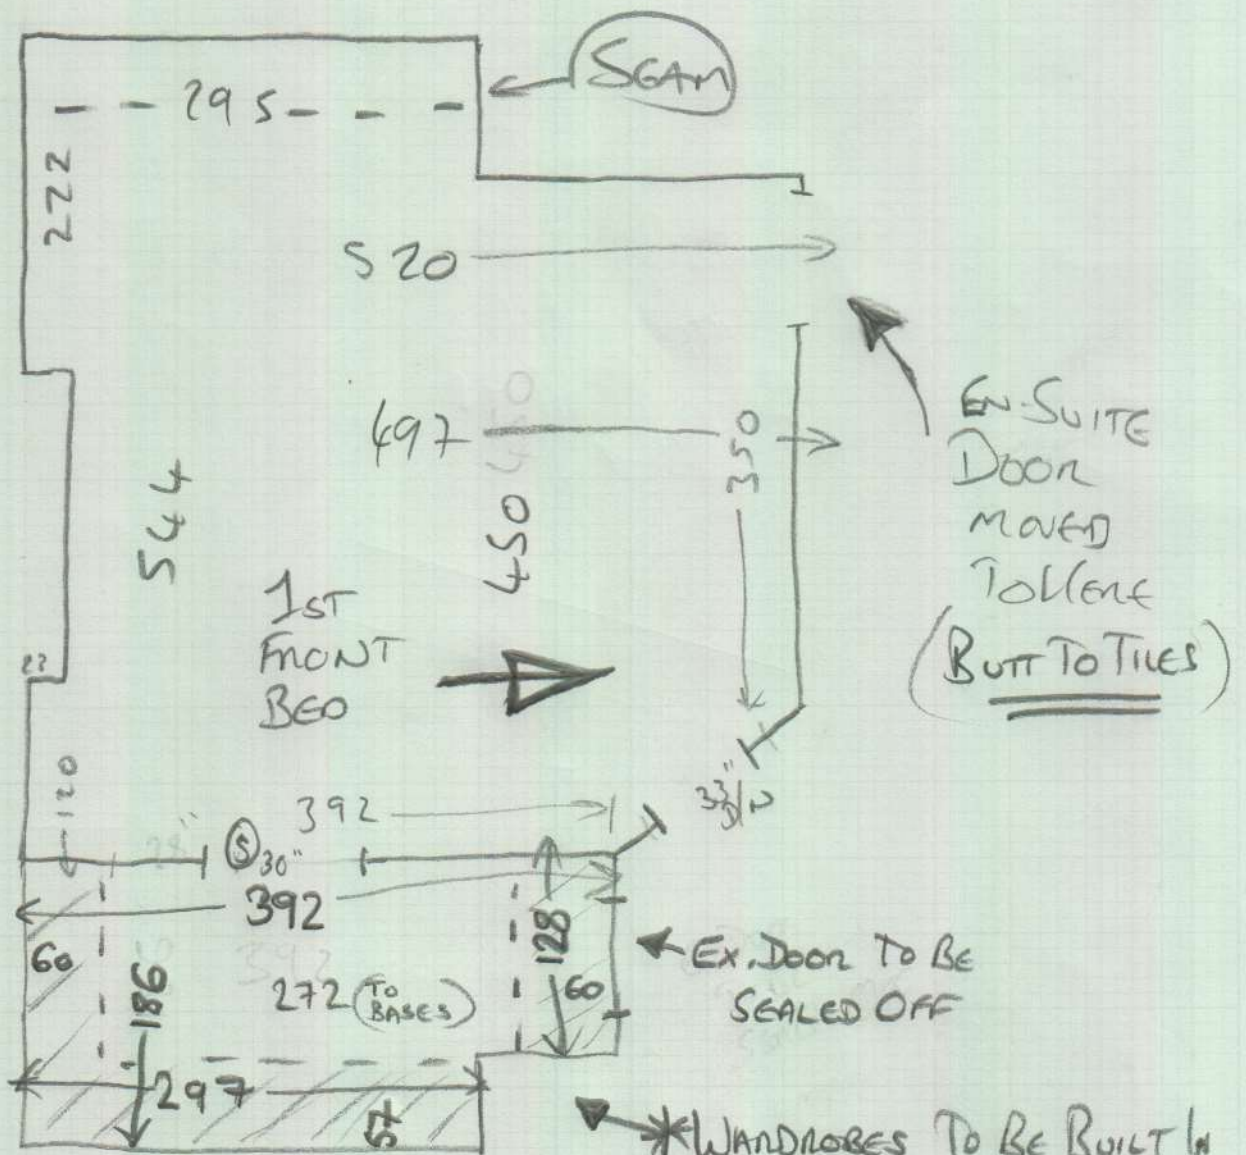 SEAM
295
222
520
497
450
350
544
EN-SUITE
DOOR
MOVED
TO HERE
(BUTT TO TILES)
1ST
FRONT
BED
120
392
S 30"
28"
392
60
186
272 (TO BASES)
128
60
EX. DOOR TO BE
SEALED OFF
297
57
* WARDROBES TO BE BUILT IN